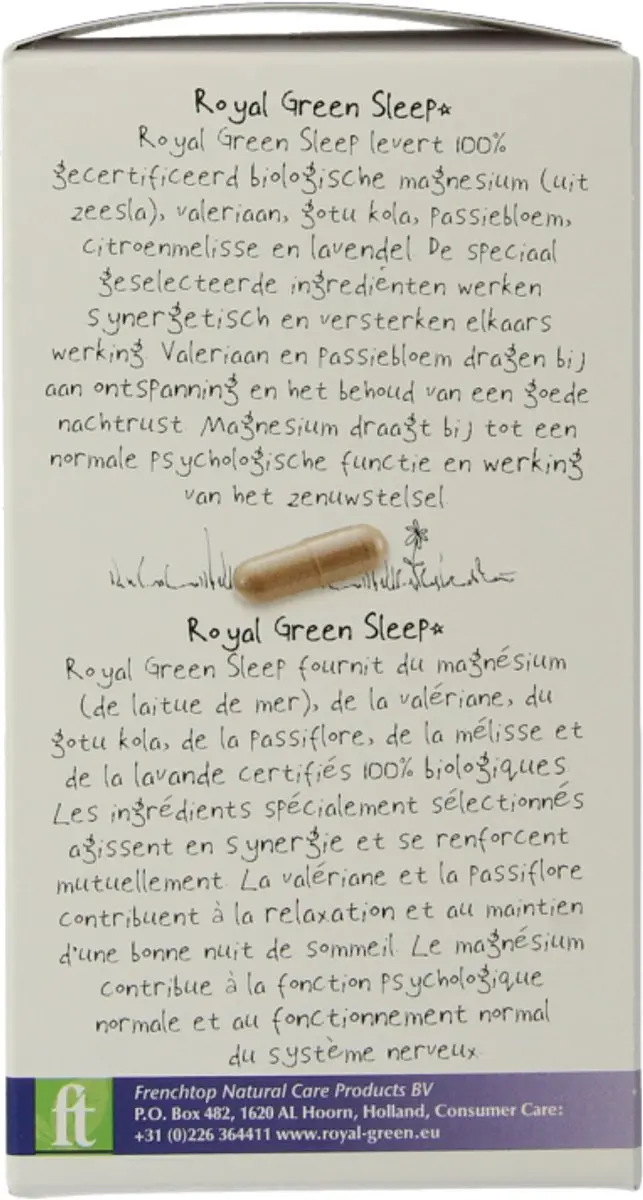 Royal Green Sleep*
Royal Green Sleep levert 100%
gecertificeerd biologische magnesium (uit
zeesla), valeriaan, gotu kola, passiebloem,
citroenmelisse en lavendel. De speciaal
geselecteerde ingrediënten werken
synergetisch en versterken elkaars
werking. Valeriaan en passiebloem dragen bij
aan ontspanning en het behoud van een goede
nachtrust. Magnesium draagt bij tot een
normale psychologische functie en werking
van het zenuwstelsel.
Royal Green Sleep*
Royal Green Sleep fournit du magnésium
(de laitue de mer), de la valériane, du
gotu kola, de la passiflore, de la mélisse et
de la lavande certifiés 100% biologiques.
Les ingrédients spécialement sélectionnés
agissent en synergie et se renforcent
mutuellement. La valériane et la passiflore
contribuent à la relaxation et au maintien
d'une bonne nuit de sommeil. Le magnésium
contribue à la fonction psychologique
normale et au fonctionnement normal
du système nerveux.
ft
Frenchtop Natural Care Products BV
P.O. Box 482, 1620 AL Hoorn, Holland, Consumer Care:
+31 (0)226 364411 www.royal-green.eu